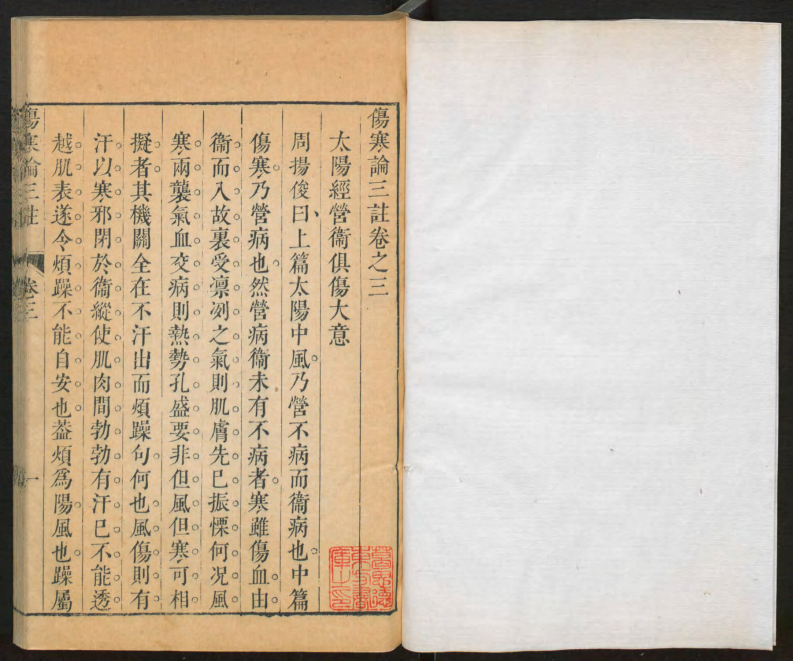 傷寒論三註卷之三
太陽經營衞俱傷大意
周揚俊曰上篇太陽中風乃營不病而衞病也中篇
傷寒乃營病也然營病衞未有不病者寒雖傷血由
衞而入故裏受凛冽之氣則肌膚先已振慄何况風
寒兩襲氣血交病則熱勢孔盛要非但風但寒可相
擬者其機關全在不汗出而煩躁句何也風傷則有
汗以寒邪閉於衞縱使肌肉間勃勃有汗已不能透
越肌表遂令煩躁不能自安也葢煩爲陽風也躁屬
傷寒論三註
卷三
一